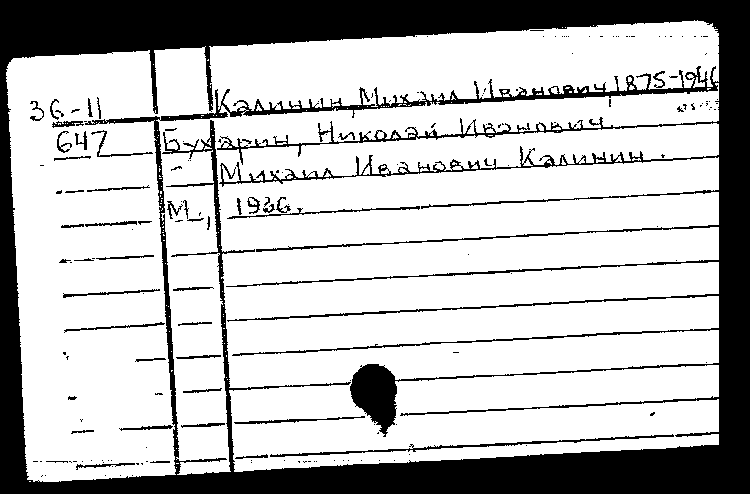 36-11 Калинин, Михаил Иванович, 1875-1946
647 Бухарин, Николай Иванович.
Михаил Иванович Калинин.
М., 1936.